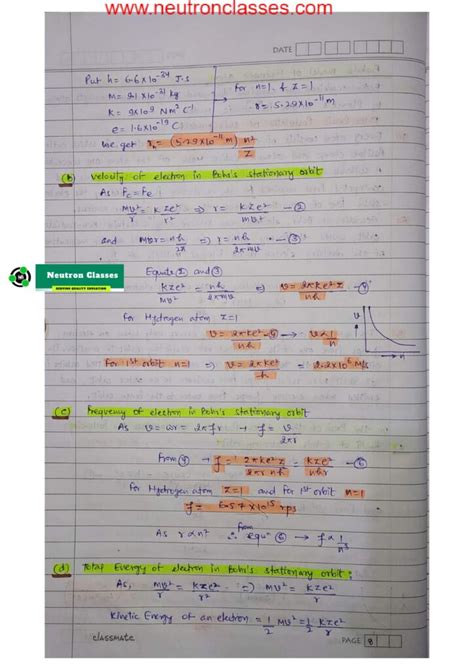 www.neutronclasses.com
DATE
Put h = 6.6×10⁻³⁴ J.s
M = 9.1×10⁻³¹ kg
K = 9×10⁹ Nm² C⁻²
e = 1.6×10⁻¹⁹ C
for n=1, & z=1
r = 5.29×10⁻¹¹ m
We get rₙ = (5.29×10⁻¹¹ m) n²/z
(b) velocity of electron in Bohr's stationary orbit
As Fc = Fe
mv²/r = kze²/r² ⇒ r = kze²/mv² — ②
and mvr = nh/2π ⇒ r = nh/2πmv — ③
Equate ② and ③
kze²/mv² = nh/2πmv ⇒ v = 2πke²z/nh — ④
Neutron Classes
For Hydrogen atom z=1
v
n
v = 2πke²/nh → v∝1/n
For 1st orbit n=1 ⇒ v = 2πke²/h = 2.2×10⁶ m/s
(c) Frequency of electron in Bohr's stationary orbit
As v = ωr = 2πfr → f = v/2πr
from ④ → f = 1/2πr 2πke²z/nh = kze²/nhr — ⑥
for Hydrogen atom z=1 and for 1st orbit n=1
f = 6.57×10¹⁵ rps
As r∝n² ∴ from equⁿ ⑥ → f∝1/n³
(d) Total Energy of electron in Bohr's stationary orbit:
As, mv²/r = kze²/r² ⇒ mv² = kze²/r
Kinetic Energy of an electron = 1/2 mv² = 1/2 kze²/r
classmate
PAGE 8